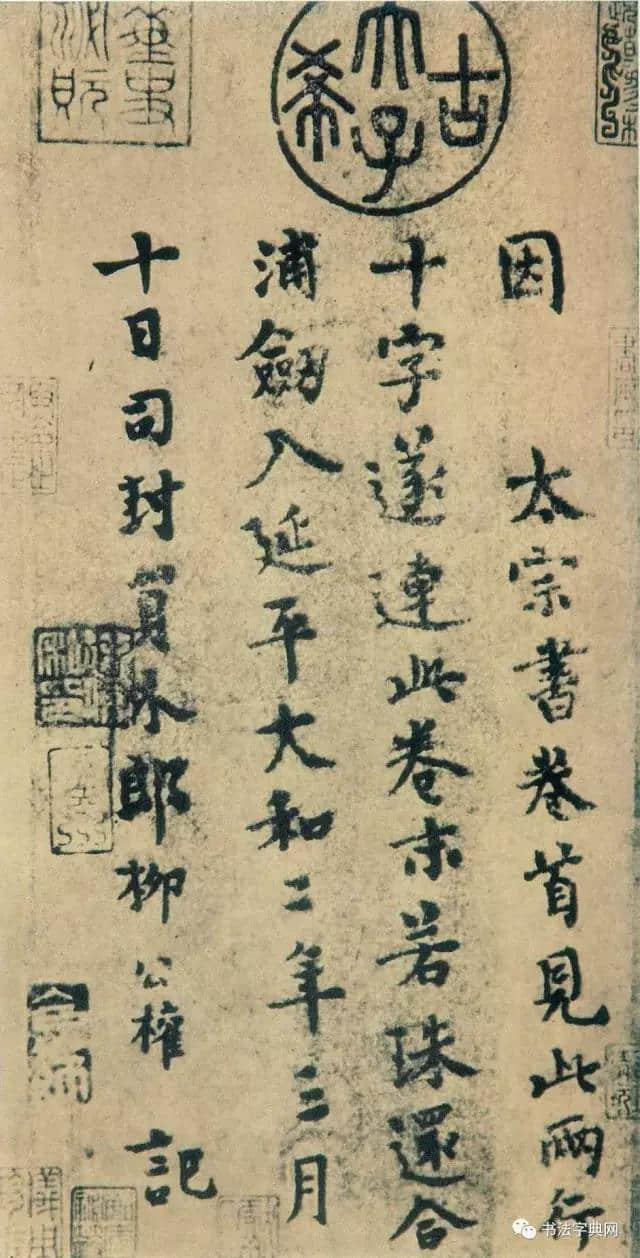 古希天子
因 太宗書卷首見此兩行
十字遂連此卷末若珠還合
浦劒入延平大和二年三月
十日司封員外郎柳公權記
书法字典网